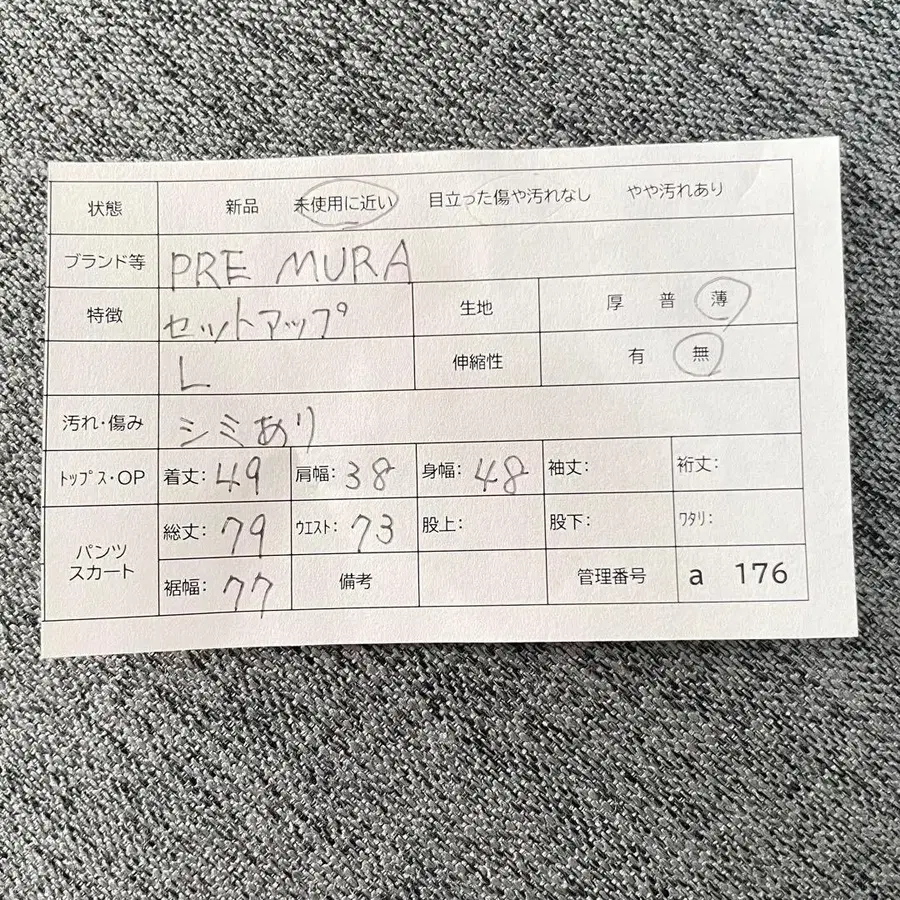 状態 新品 未使用に近い 目立った傷や汚れなし やや汚れあり
ブランド等 PRE MURA
特徴 セットアップ 生地 厚 普 薄
L 伸縮性 有 無
汚れ・傷み シミあり
トップス・OP 着丈: 49 肩幅: 38 身幅: 48 袖丈: 裄丈:
パンツ スカート 総丈: 79 ウエスト: 73 股上: 股下: ワタリ:
裾幅: 77 備考 管理番号 a 176